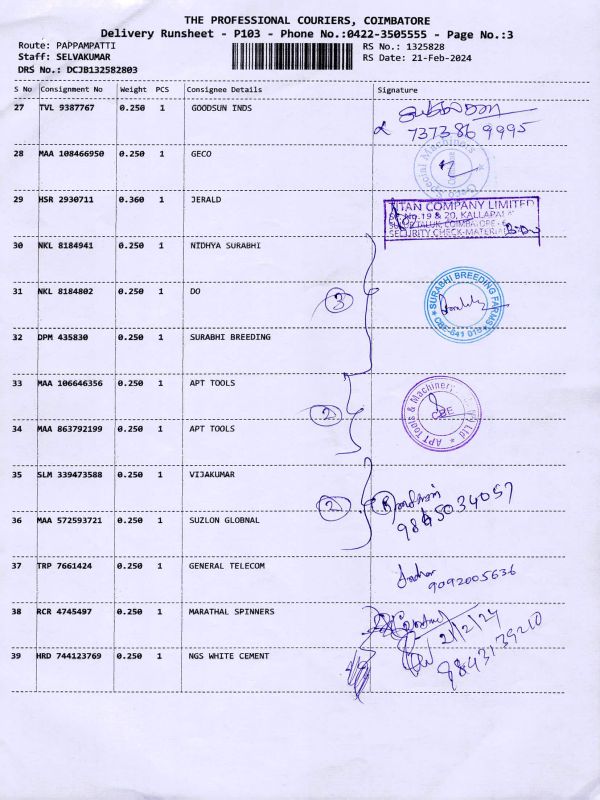 THE PROFESSIONAL COURIERS, COIMBATORE
Delivery Runsheet - P103 - Phone No.:0422-3505555 - Page No.:3
Route: PAPPAMPATTI RS No.: 1325828
Staff: SELVAKUMAR RS Date: 21-Feb-2024
DRS No.: DCJB132582803
S No Consignment No Weight PCS Consignee Details Signature
27 TVL 9387767 0.250 1 GOODSUN INDS
7373869995
28 MAA 108466950 0.250 1 GECO
Special Machines
29 HSR 2930711 0.360 1 JERALD
TITAN COMPANY LIMITED
NO.19 & 20, KALLAPA
TALUK, COIMBATORE
SECURITY CHECK-MATERIAL
30 NKL 8184941 0.250 1 NIDHYA SURABHI
31 NKL 8184802 0.250 1 DO
3
SURABHI BREEDING FARMS
CBE-641 016
32 DPM 435830 0.250 1 SURABHI BREEDING
33 MAA 106646356 0.250 1 APT TOOLS
2
APT Tools & Machinery Ltd
CBE
34 MAA 863792199 0.250 1 APT TOOLS
35 SLM 339473588 0.250 1 VIJAKUMAR
2
9865034057
36 MAA 572593721 0.250 1 SUZLON GLOBNAL
37 TRP 7661424 0.250 1 GENERAL TELECOM
9092005636
38 RCR 4745497 0.250 1 MARATHAL SPINNERS
21/2/24
9843139210
39 HRD 744123769 0.250 1 NGS WHITE CEMENT